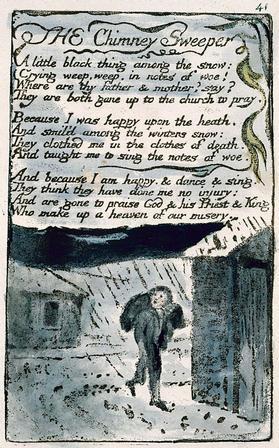 41
THE Chimney Sweeper
A little black thing among the snow:
Crying weep, weep, in notes of woe!
Where are thy father & mother? say?
They are both gone up to the church to pray.
Because I was happy upon the heath,
And smil'd among the winters snow:
They clothed me in the clothes of death,
And taught me to sing the notes of woe.
And because I am happy, & dance & sing,
They think they have done me no injury:
And are gone to praise God & his Priest & King
Who make up a heaven of our misery.